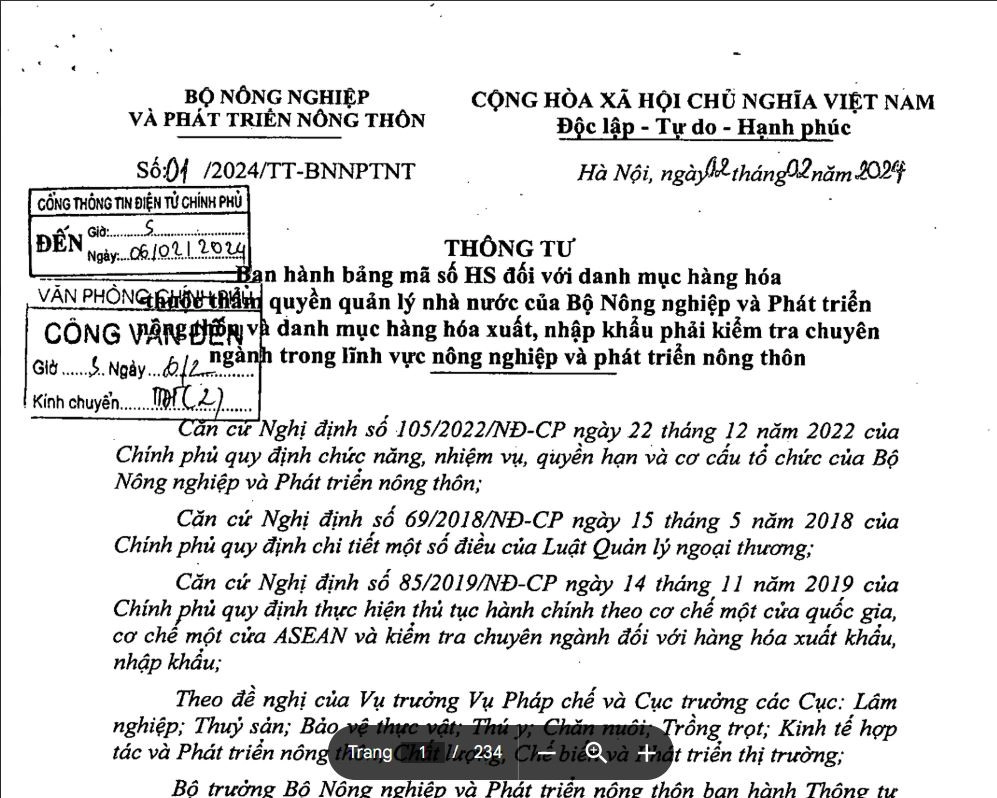 BỘ NÔNG NGHIỆP
VÀ PHÁT TRIỂN NÔNG THÔN
CỘNG HÒA XÃ HỘI CHỦ NGHĨA VIỆT NAM
Độc lập - Tự do - Hạnh phúc
Số:01 /2024/TT-BNNPTNT
Hà Nội, ngày 02 tháng 02 năm 2024
CỔNG THÔNG TIN ĐIỆN TỬ CHÍNH PHỦ
ĐẾN
Giờ:.......S
Ngày:...06/02/2024
VĂN PHÒNG CHÍNH PHỦ
CÔNG VĂN ĐẾN
Giờ ......S. Ngày ...6/2
Kính chuyển
THÔNG TƯ
Ban hành bảng mã số HS đối với danh mục hàng hóa
thuộc thẩm quyền quản lý nhà nước của Bộ Nông nghiệp và Phát triển
nông thôn và danh mục hàng hóa xuất, nhập khẩu phải kiểm tra chuyên
ngành trong lĩnh vực nông nghiệp và phát triển nông thôn
Căn cứ Nghị định số 105/2022/NĐ-CP ngày 22 tháng 12 năm 2022 của
Chính phủ quy định chức năng, nhiệm vụ, quyền hạn và cơ cấu tổ chức của Bộ
Nông nghiệp và Phát triển nông thôn;
Căn cứ Nghị định số 69/2018/NĐ-CP ngày 15 tháng 5 năm 2018 của
Chính phủ quy định chi tiết một số điều của Luật Quản lý ngoại thương;
Căn cứ Nghị định số 85/2019/NĐ-CP ngày 14 tháng 11 năm 2019 của
Chính phủ quy định thực hiện thủ tục hành chính theo cơ chế một cửa quốc gia,
cơ chế một cửa ASEAN và kiểm tra chuyên ngành đối với hàng hóa xuất khẩu,
nhập khẩu;
Theo đề nghị của Vụ trưởng Vụ Pháp chế và Cục trưởng các Cục: Lâm
nghiệp; Thuỷ sản; Bảo vệ thực vật; Thú y; Chăn nuôi; Trồng trọt; Kinh tế hợp
tác và Phát triển nông thôn; Chất lượng, Chế biến và Phát triển thị trường;
Trang 1 / 234
Bộ trưởng Bộ Nông nghiệp và Phát triển nông thôn ban hành Thông tư